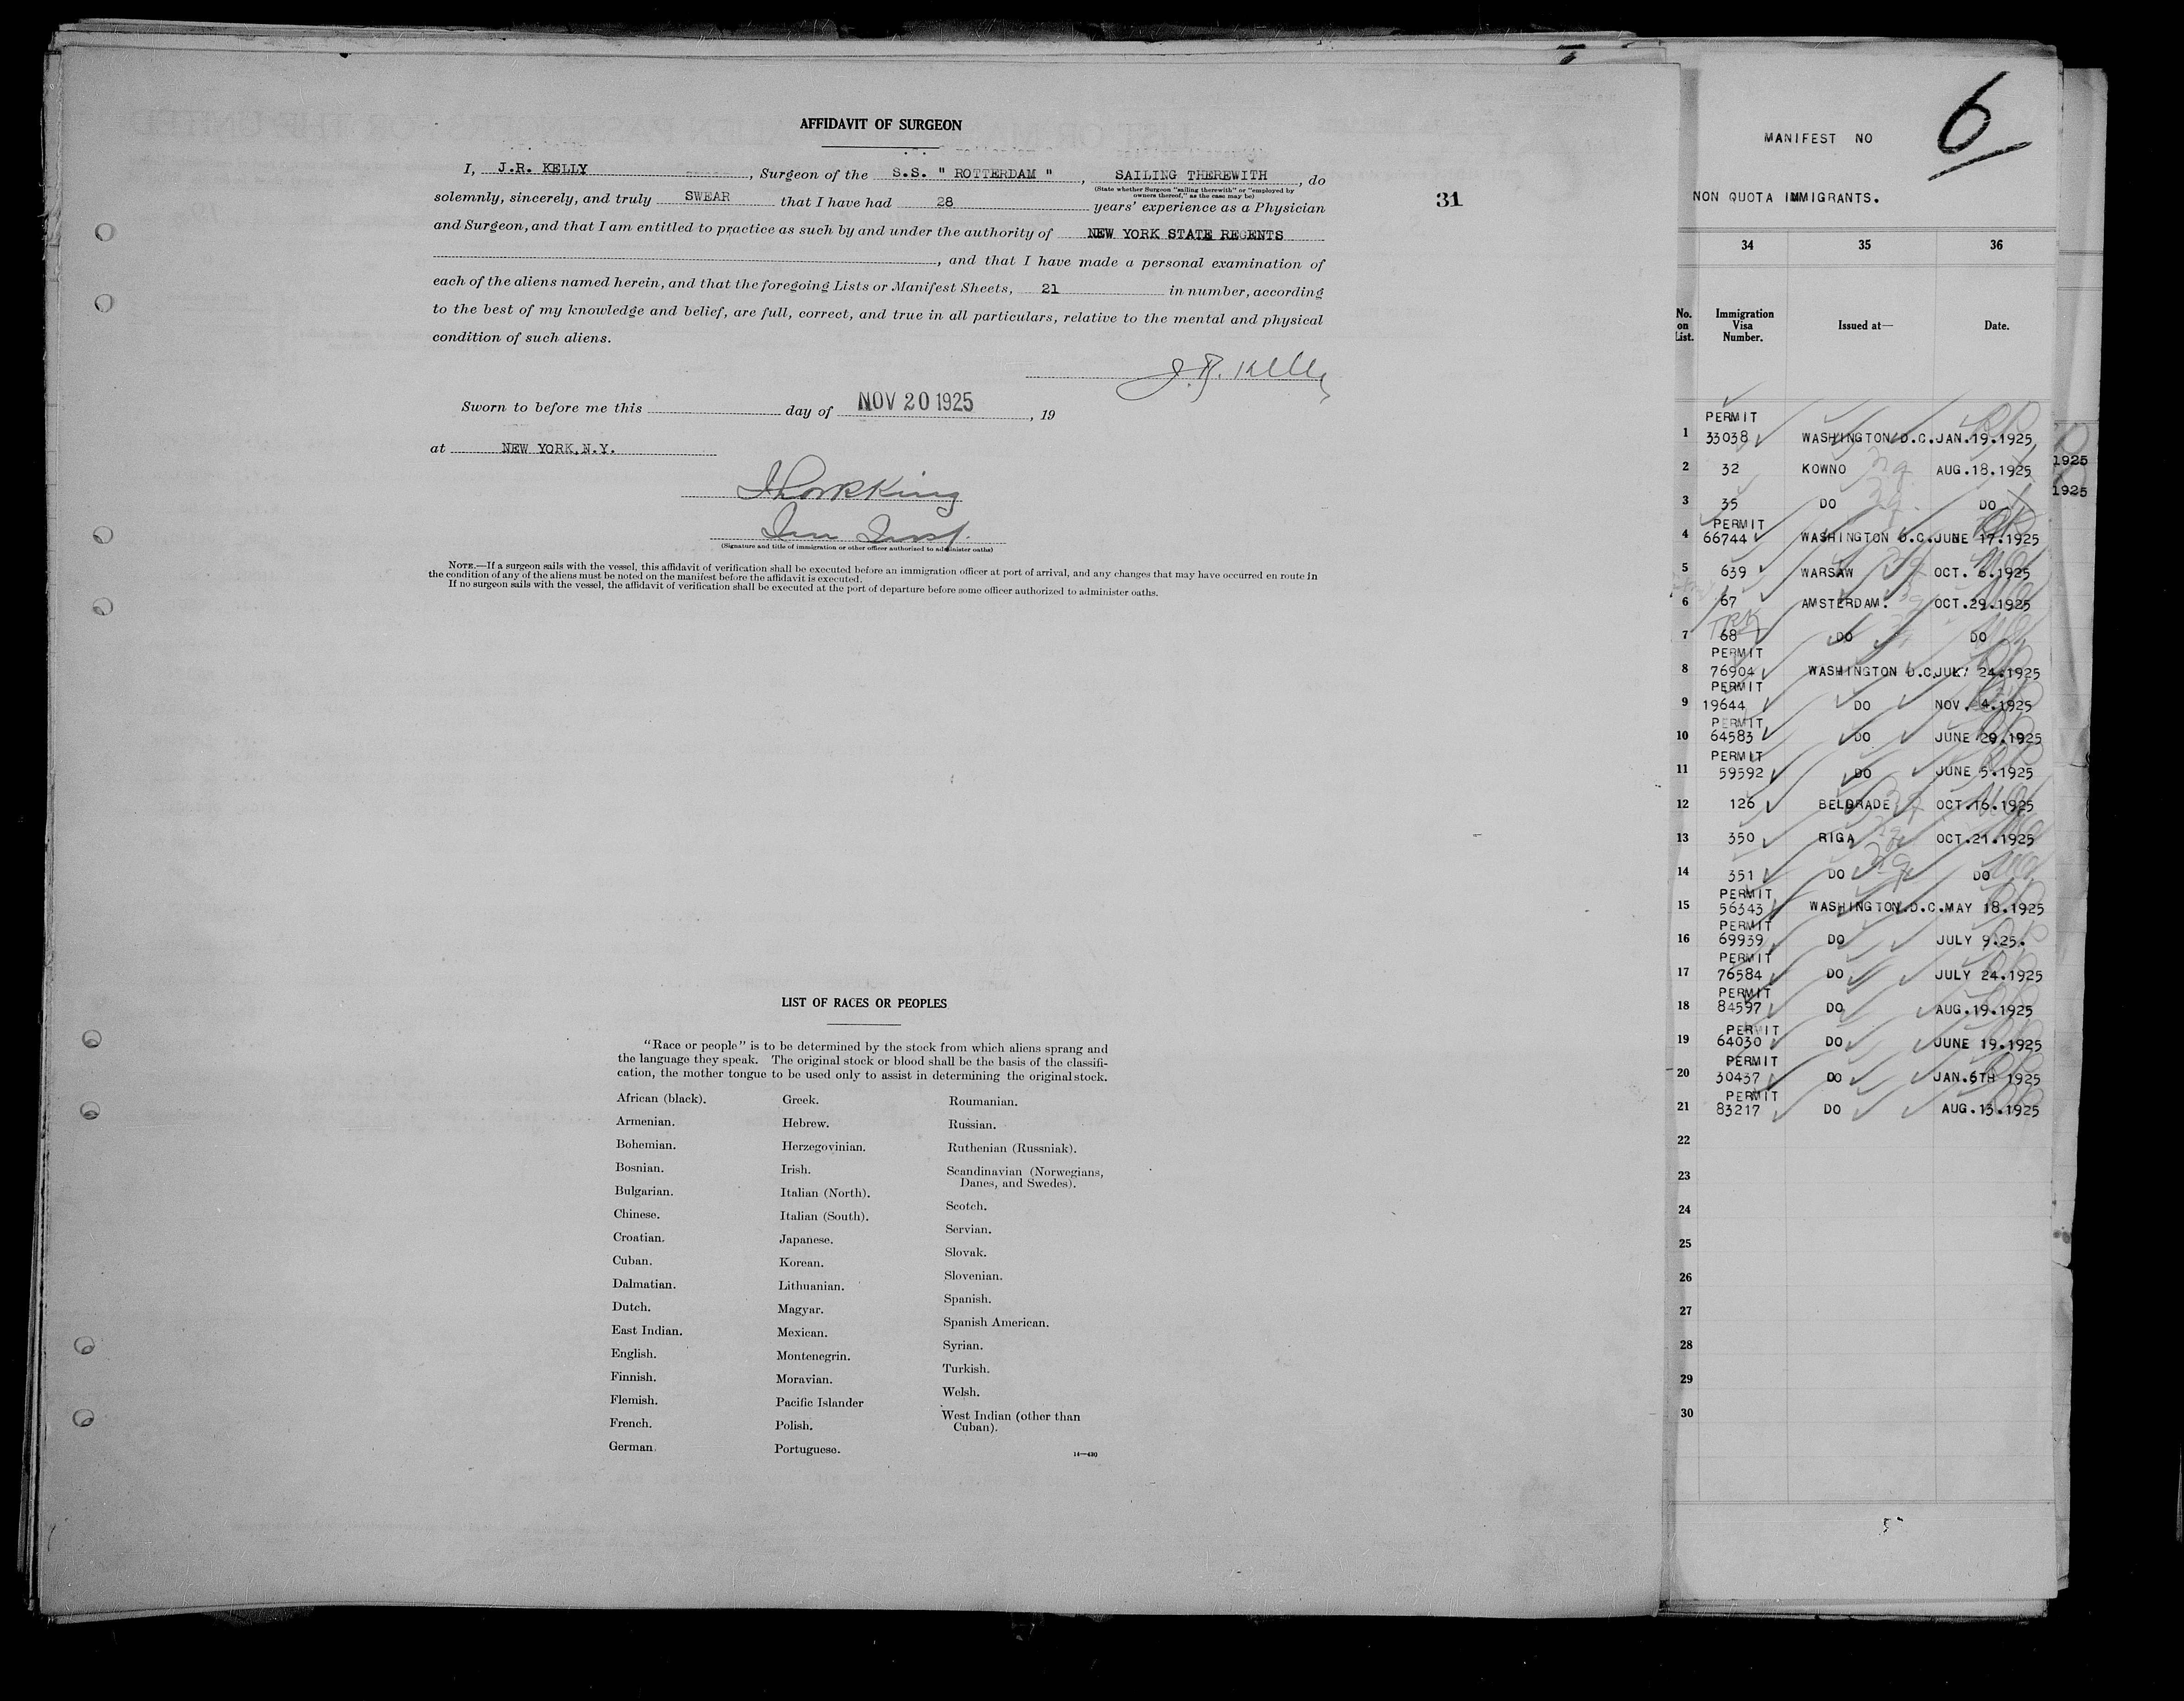 AFFIDAVIT OF SURGEON
I, J.R. KELLY, Surgeon of the S.S. " ROTTERDAM ", SAILING THEREWITH, do
(State whether Surgeon "sailing therewith" or "employed by
owners thereof," as the case may be)
solemnly, sincerely, and truly SWEAR that I have had 28 years' experience as a Physician
and Surgeon, and that I am entitled to practice as such by and under the authority of NEW YORK STATE REGENTS
, and that I have made a personal examination of
each of the aliens named herein, and that the foregoing Lists or Manifest Sheets, 21 in number, according
to the best of my knowledge and belief, are full, correct, and true in all particulars, relative to the mental and physical
condition of such aliens.
J.R. Kelly
Sworn to before me this day of NOV 20 1925, 19
at NEW YORK, N.Y.
(Signature and title of immigration or other officer authorized to administer oaths)
NOTE.—If a surgeon sails with the vessel, this affidavit of verification shall be executed before an immigration officer at port of arrival, and any changes that may have occurred en route in
the condition of any of the aliens must be noted on the manifest before the affidavit is executed.
If no surgeon sails with the vessel, the affidavit of verification shall be executed at the port of departure before some officer authorized to administer oaths.
31
LIST OF RACES OR PEOPLES
"Race or people" is to be determined by the stock from which aliens sprang and
the language they speak. The original stock or blood shall be the basis of the classifi-
cation, the mother tongue to be used only to assist in determining the original stock.
African (black).
Armenian.
Bohemian.
Bosnian.
Bulgarian.
Chinese.
Croatian.
Cuban.
Dalmatian.
Dutch.
East Indian.
English.
Finnish.
Flemish.
French.
German.
Greek.
Hebrew.
Herzegovinian.
Irish.
Italian (North).
Italian (South).
Japanese.
Korean.
Lithuanian.
Magyar.
Mexican.
Montenegrin.
Moravian.
Pacific Islander
Polish.
Portuguese.
Roumanian.
Russian.
Ruthenian (Russniak).
Scandinavian (Norwegians,
Danes, and Swedes).
Scotch.
Servian.
Slovak.
Slovenian.
Spanish.
Spanish American.
Syrian.
Turkish.
Welsh.
West Indian (other than
Cuban).
14—430
MANIFEST NO 6
NON QUOTA IMMIGRANTS.
34 35 36
No. on List. Immigration Visa Number. Issued at— Date.
PERMIT
1 33038 WASHINGTON D.C. JAN.19.1925
2 32 KOWNO AUG.18.1925
3 35 DO DO
PERMIT
4 66744 WASHINGTON D.C. JUNE 17.1925
5 639 WARSAW OCT. 6.1925
6 67 AMSTERDAM. OCT.29.1925
7 68 DO DO
PERMIT
8 76904 WASHINGTON D.C. JULY 24.1925
PERMIT
9 19644 DO NOV. 4.1925
PERMIT
10 64583 DO JUNE 20.1925
PERMIT
11 59592 DO JUNE 5.1925
12 126 BELGRADE OCT.16.1925
13 350 RIGA OCT.21.1925
14 351 DO DO
PERMIT
15 56343 WASHINGTON.D.C. MAY 18.1925
PERMIT
16 69939 DO JULY 9.25.
PERMIT
17 76584 DO JULY 24.1925
PERMIT
18 84597 DO AUG.19.1925
PERMIT
19 64030 DO JUNE 19.1925
PERMIT
20 30437 DO JAN.6TH 1925
PERMIT
21 83217 DO AUG.13.1925
22
23
24
25
26
27
28
29
30
5
1925
1925